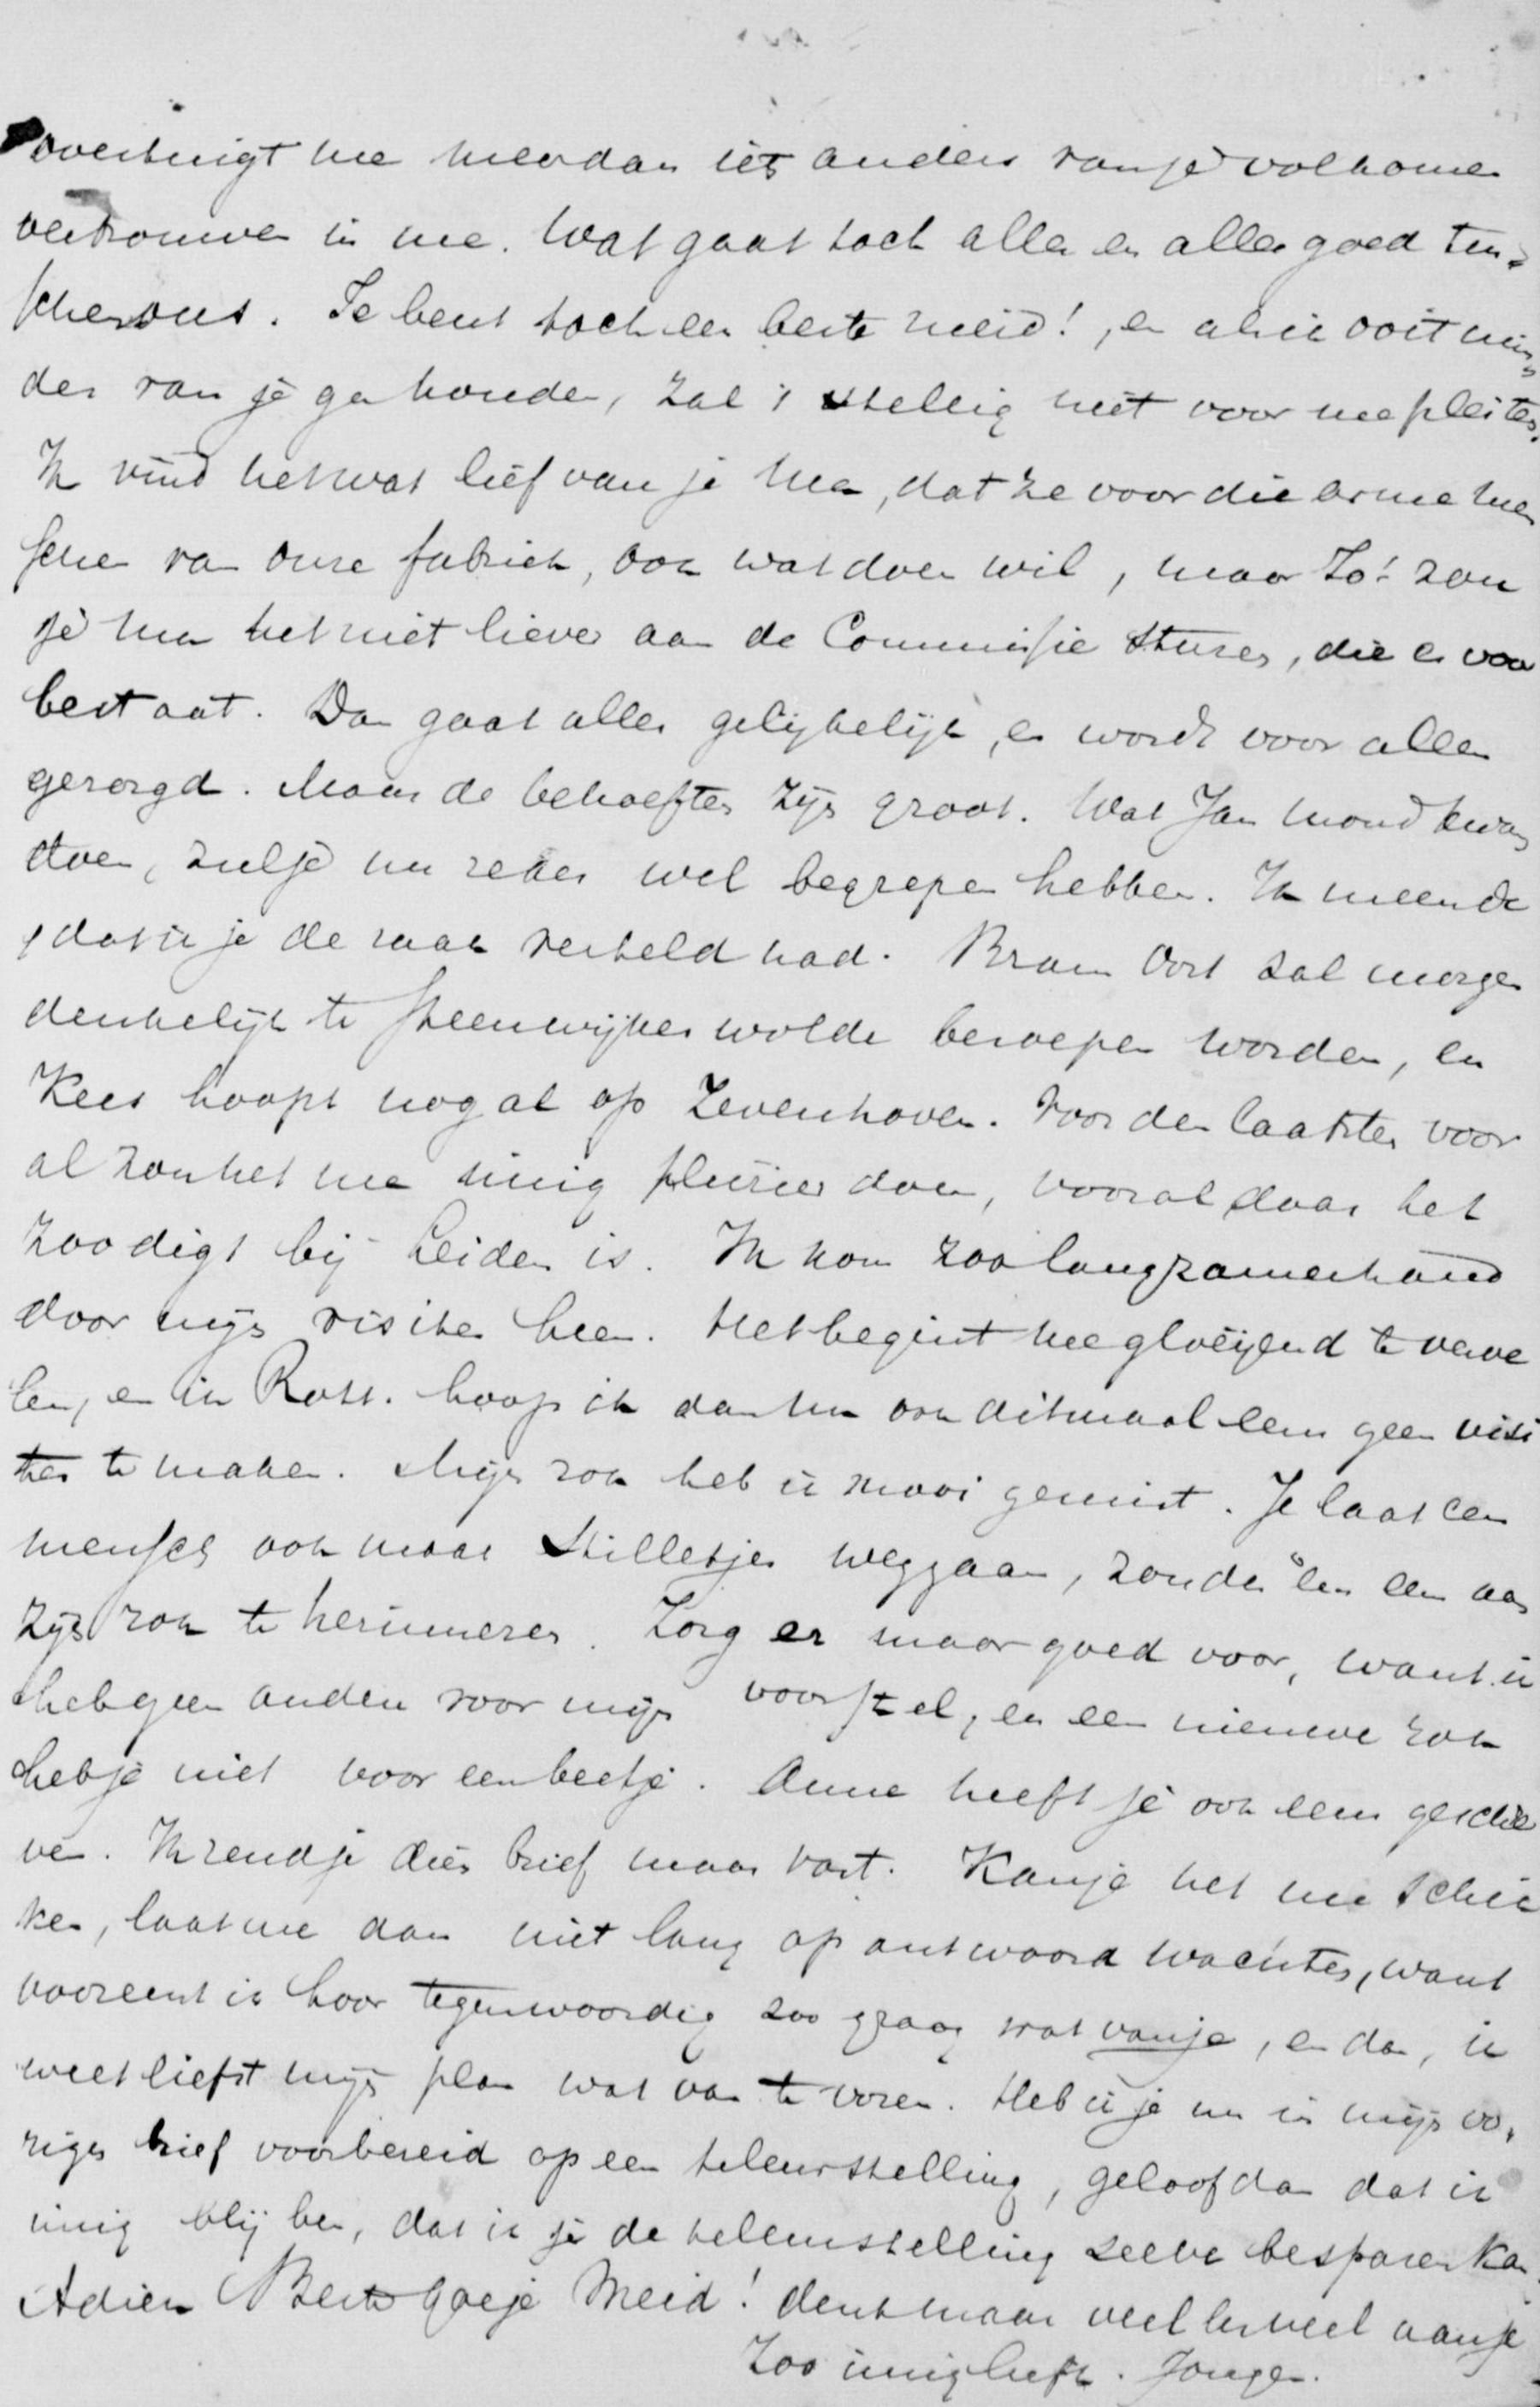 overtuigt me meerdan iets anders van je volkomen
vertrouwen in me. Wat gaat toch alles en alles goed tus=
schen ons. Je bent toch een beste meid!, en als ik ooit min=
der van je ga houden, zal 't stellig niet voor me pleiten.
Ik vind het wat lief van je Ma, dat ze voor die arme men
schen van onze fabriek, ook wat doen wil, maar Zo! zou
je Ma het niet liever aan de Commissie sturen, die er voor
bestaat. Dan gaat alles gelijkelijk, er wordt voor allen
gezorgd. Maar de behoeften zijn groot. Wat Jan Mond kwam
doen, zulje nu zeker wel begrepen hebben. Ik meende
dat ik je de zaak verteld had. Bram Oort zal morgen
denkelijk te Steenwijkerwolde beroepen worden, en
Kees hoopt nog al op Zevenhoven. Voor den laatsten voor
al zou het me innig plezier doen, vooral daar het
zoo digt bij Leiden is. Ik kom zoo langzamerhand
door mijn visites heen. Het begint me gloeijend te verve
len, en in Rott. hoop ik dan nu ook ditmaal eens geen visi
tes te maken. Mijn rok heb ik mooi gemist. Je laat een
mensch ook maar stilletjes weggaan, zonder een aan
zijn rok te herinneren. Zorg er maar goed voor, want ik
heb geen andere voor mijn voorstel, en een nieuwe rok
hebje niet voor een beetje. Anna heeft je ook eens geschre
ven. Ik zendje dees brief maar vast. Kanje het nu schik
ken, laat me dan niet lang op antwoord wachten, want
vooreerst ik hoor tegenwoordig zoo graag wat vanje, en dan, ik
weet liefst mijn plan wat van te voren. Heb ik je nu in mijn vo=
rigen brief voorbereid op een teleurstelling, geloof dan dat ik
innig blij ben, dat ik je de teleurstelling zelve besparen kan.
Adieu Beste goeje Meid! denk maar veel en veel aanje
Zoo innig liefh. Jongen.